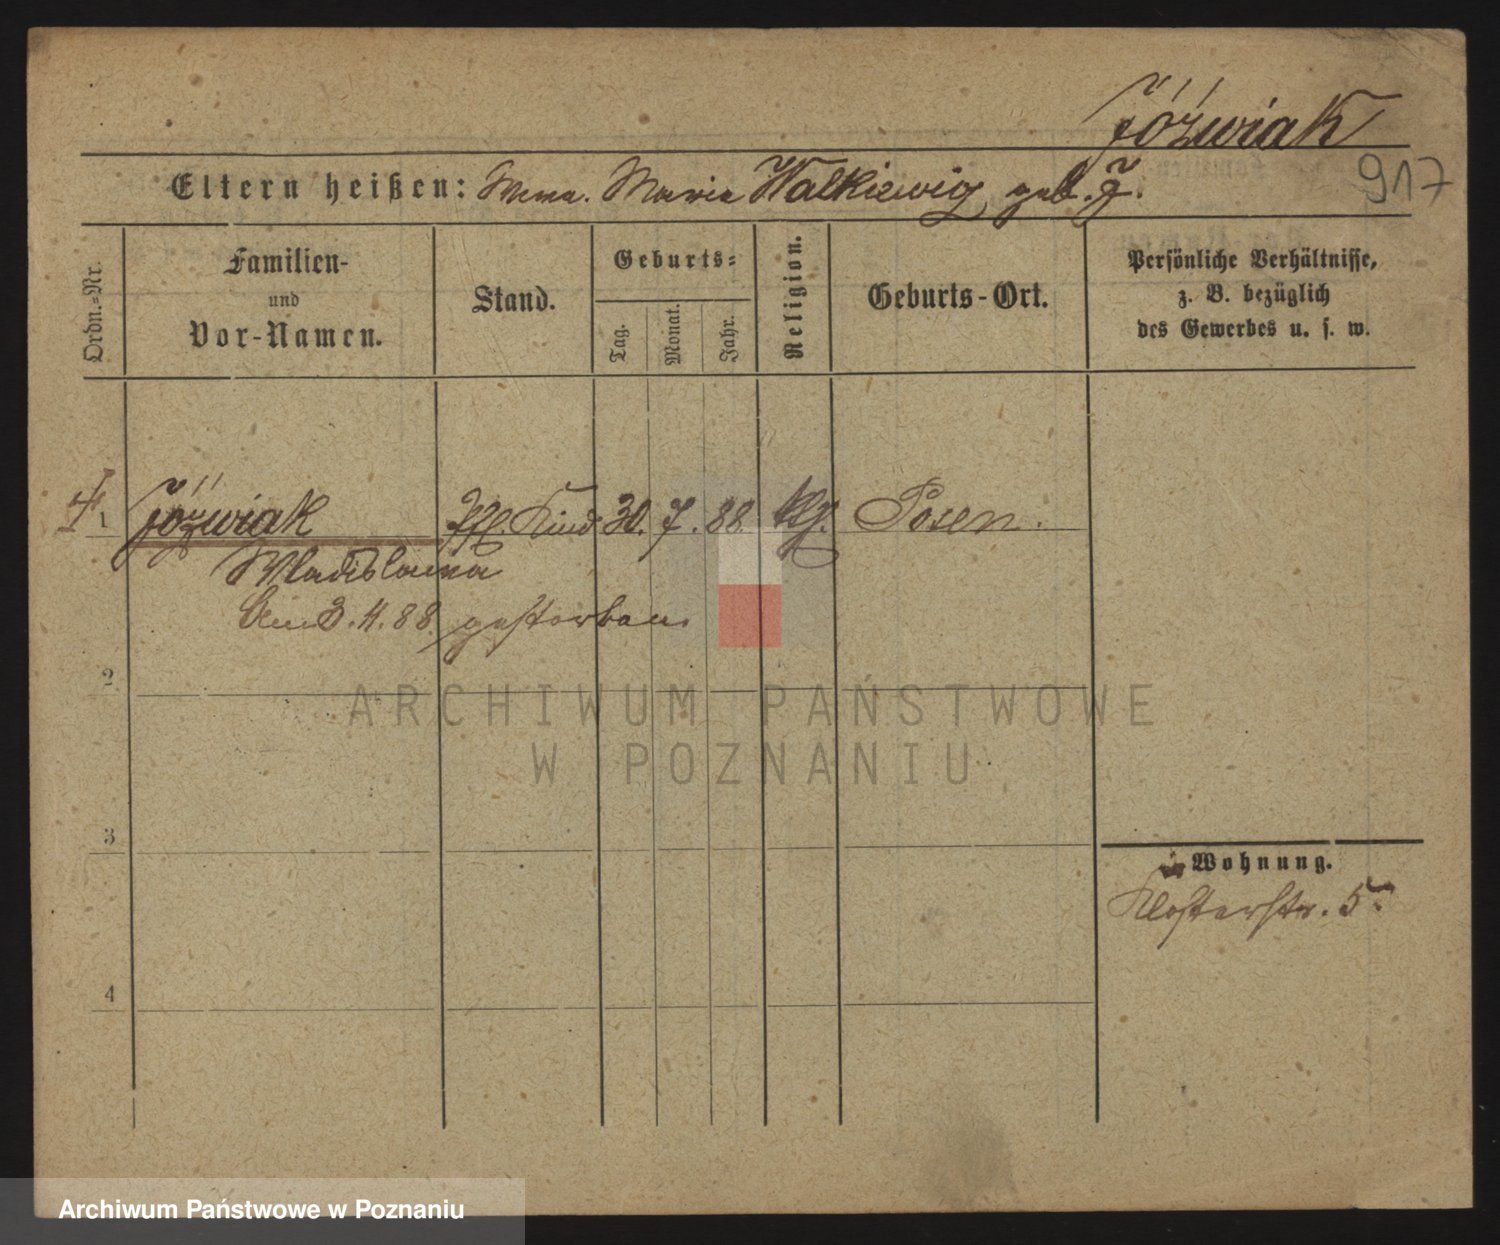 Jóźwiak
917
Eltern heißen: Wwe. Maria Walkiewicz geb. J.
Ordn.-Nr.
Familien-
und
Vor-Namen.
Stand.
Geburts-
Tag.
Monat.
Jahr.
Religion.
Geburts-Ort.
Persönliche Verhältnisse,
z. B. bezüglich
des Gewerbes u. s. w.
1 Jóźwiak Pfl. Kind 30. 7. 88 Posen.
Wladislawa
Am 3. 11. 88 gestorben.
2
ARCHIWUM PAŃSTWOWE
W POZNANIU
3
Wohnung.
Klosterstr. 5.
4
Archiwum Państwowe w Poznaniu